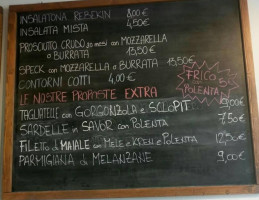 INSALATONA REBEKIN 8,00€
INSALATA MISTA 4,50€
PROSCIUTTO CRUDO 20 mesi con MOZZARELLA
o BURRATA 13,50€
SPECK con MOZZARELLA o BURRATA 13,50€
CONTORNI COTTI 4,00€
FRICO e
POLENTA
LE NOSTRE PROPOSTE EXTRA
TAGLIATELLE con GORGONZOLA e SCLOPIT
SARDELLE in SAVOR con POLENTA 7,50€
FILETTO di MAIALE con MELE e KREN e POLENTA 12,50€
PARMIGIANA di MELANZANE 9,00€